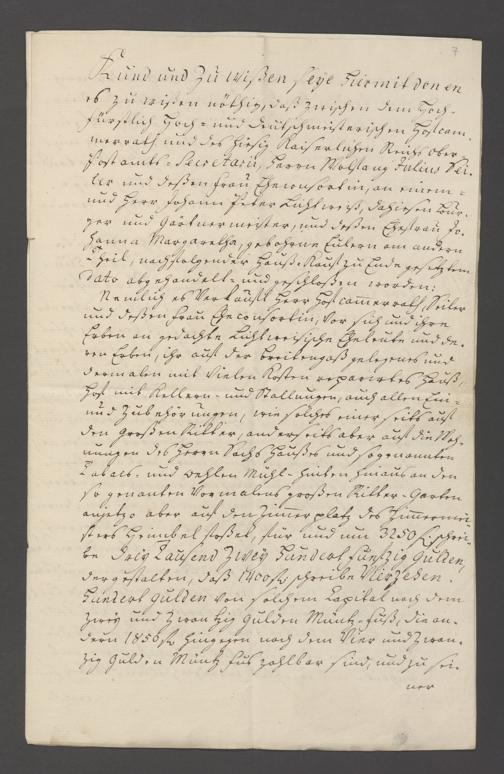 7
Kund und Zu wißen seye hiermit denen
es zu wißen nöthig, daß zwischen dem Hoch-
fürstlich Hoch- und deutschmeisterischen Hofcam-
merrath und des hiesig Kaiserlichen Reichs ober-
Postamts-Secretario, Herrn Wolfgang Julius Sei-
ler und deßen Frau Eheconsortin, an einem-
und Herr Johann Peter Lichtweiß, dahiesen Bür-
ger und Gärtnermeister, und deßen Ehefrau Jo-
hanna Margaretha, gebohrne Eulern am andern
Theil, nachfolgender Hauß-Kauf zu Ende gesetztem
dato abgehandelt- und geschloßen worden:
Nemlich es Verkaufft Herr Hofcammerrath Seiler
und deßen Frau Eheconsortin, vor sich und ihre
Erben an gedachte Lichtweißische Eheleute und de-
ren Erben, ihr auf der breitengaß gelegenes und
dermalen mit vielen Kosten reparirtes Hauß,
Hof mit Kellern- und Stallungen, auch allen Ein-
und Zubehörungen, wie solches einerseits auf
den Großen Ritter, anderseits aber auf die Woh-
nungen des Herrn Sachs Haußes und sogenannten
Tabacs- und Oehlen Mühl- hinten hinaus an den
so genanten Vormaligen großen Ritter-Garten
anjetzo aber auf den Zimmerplatz des Zimmermei-
sters Heimbel stoßet, für und um 3250 f schrei-
be Drey Tausend Zwey Hundert funfzig Gulden,
dergestalten, daß 1400 f schreibe Vierzehen
Hundert Gulden von solchem Capital nach dem
Zwey und Zwanzig Gulden Müntz-Fuß, die an-
dern 1850 f hingegen nach dem Vier und Zwan-
zig Gulden Müntz fus zahlbar sind, und zu sei-
ner